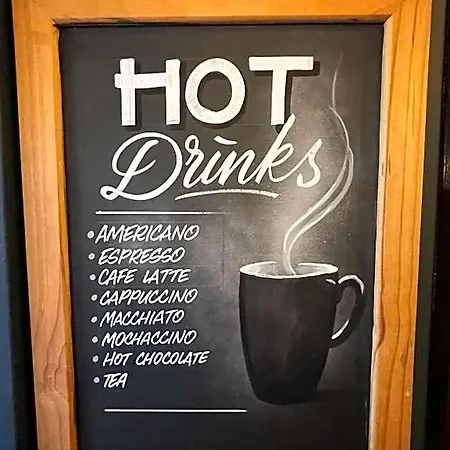 HOT
Drinks
• AMERICANO
• ESPRESSO
• CAFE LATTE
• CAPPUCCINO
• MACCHIATO
• MOCHACCINO
• HOT CHOCOLATE
• TEA